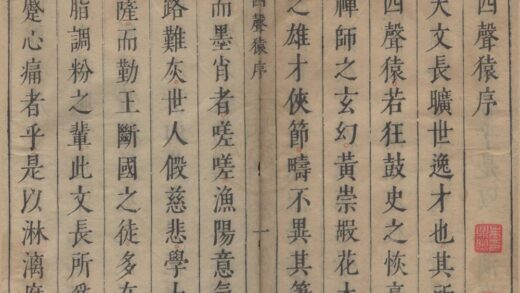 四聲猿序
文長曠世逸才也其所
四聲猿若狂鼓史之恢
禪師之玄幻黃崇嘏花
之雄才俠節疇不異其
四聲猿序
一
而墨肖者嗟嗟漁陽意氣
路難灰世人假慈悲學
而勤王斷國之徒多在
脂調粉之輩此文長所
蹙心痛者乎是以淋漓